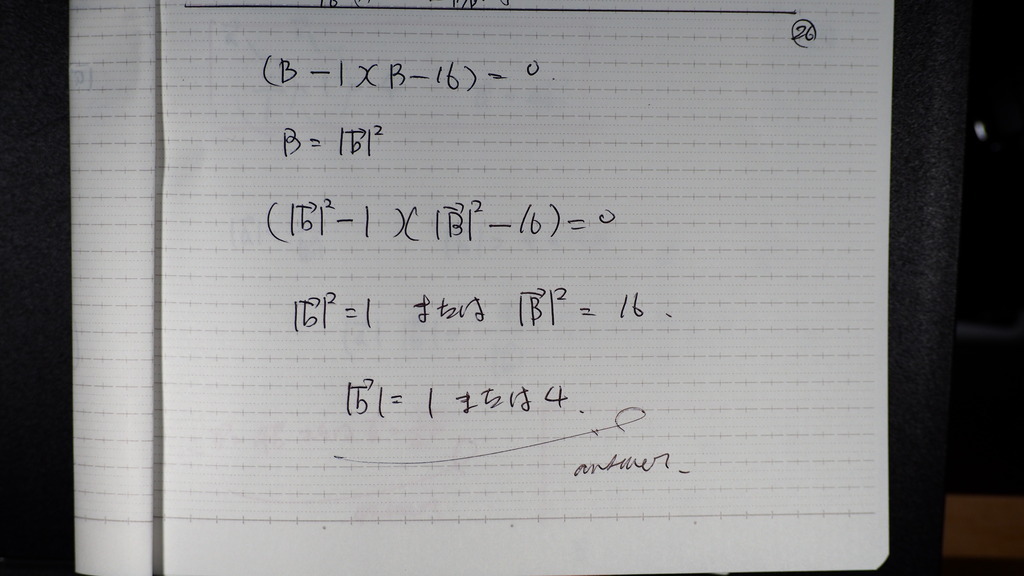 ㉖
(B-1)(B-16)=0.
B=|b⃗|²
(|b⃗|²-1)(|B⃗|²-16)=0
|b⃗|²=1 または |B⃗|²=16.
|b⃗|=1 または 4.
answer